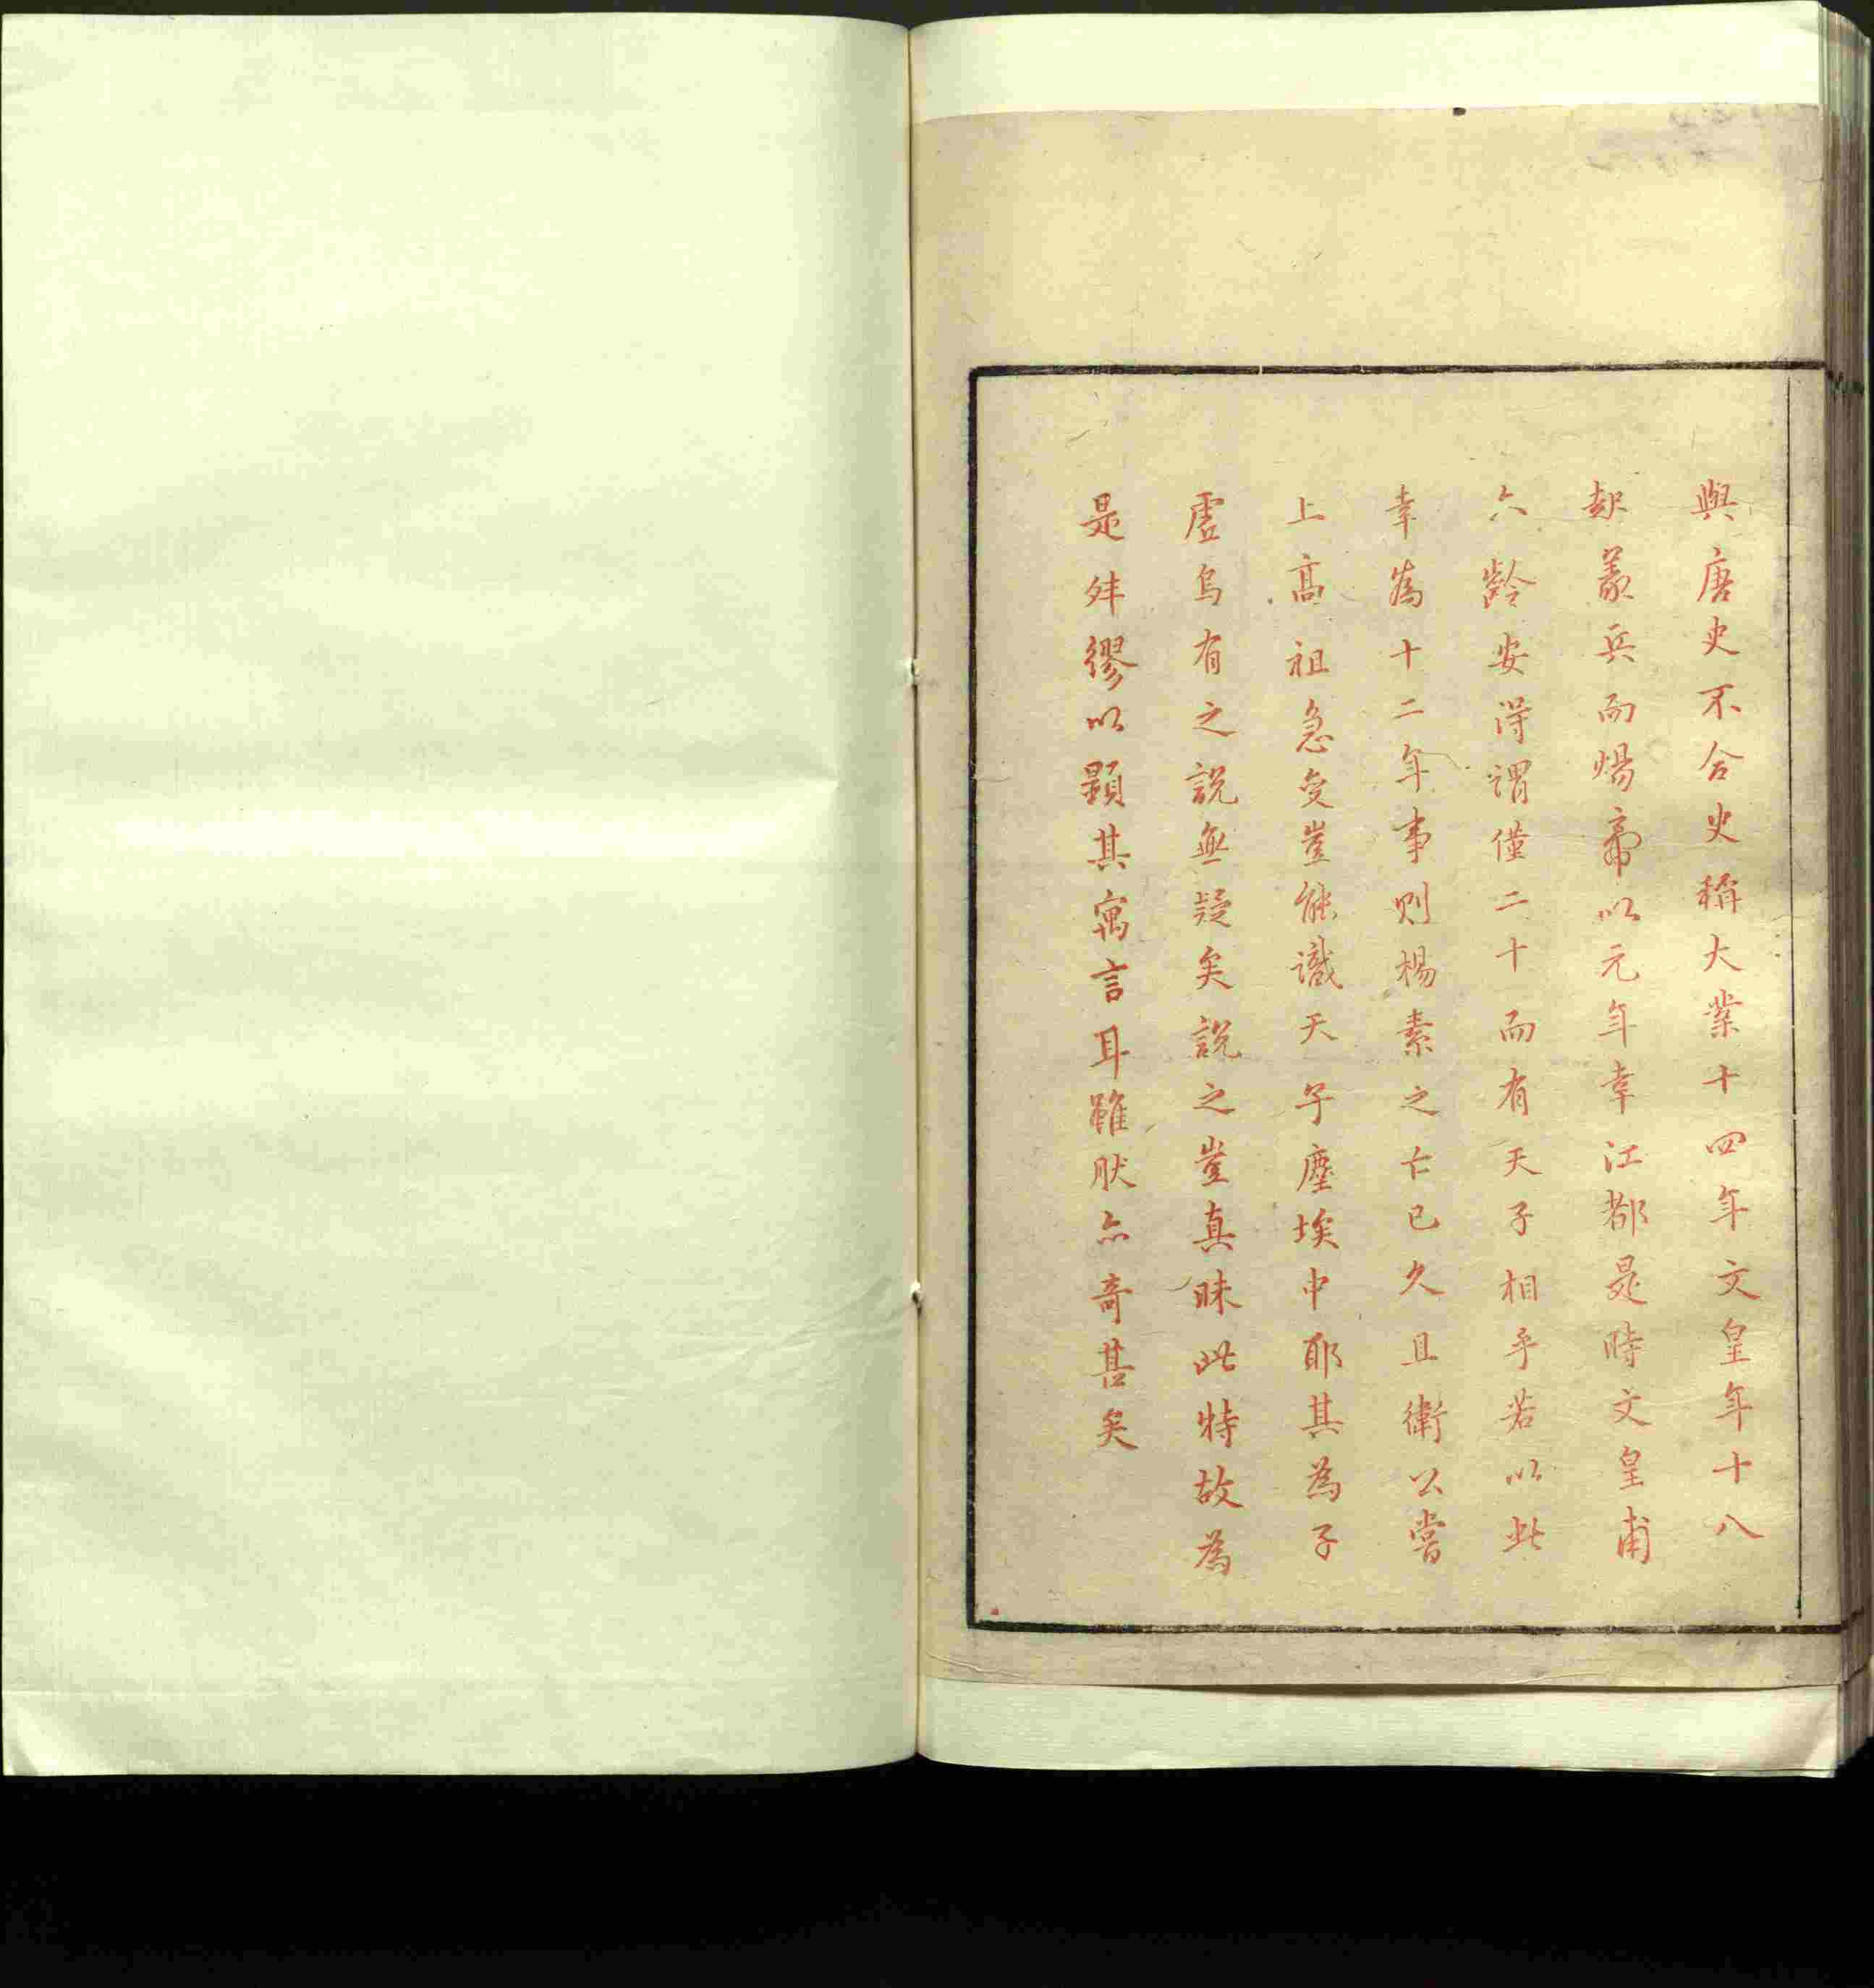 與唐史不合史稱大業十四年文皇年十八
起義兵而煬帝以元年幸江都是時文皇甫
六齡安得謂僅二十而有天子相乎若以此
幸為十二年事則楊素之亡已久且衛公嘗
上高祖急變豈能識天子塵埃中耶其為子
虛烏有之說無疑矣說之豈真昧此特故為
是舛繆以顯其寓言耳雖肰亦奇甚矣